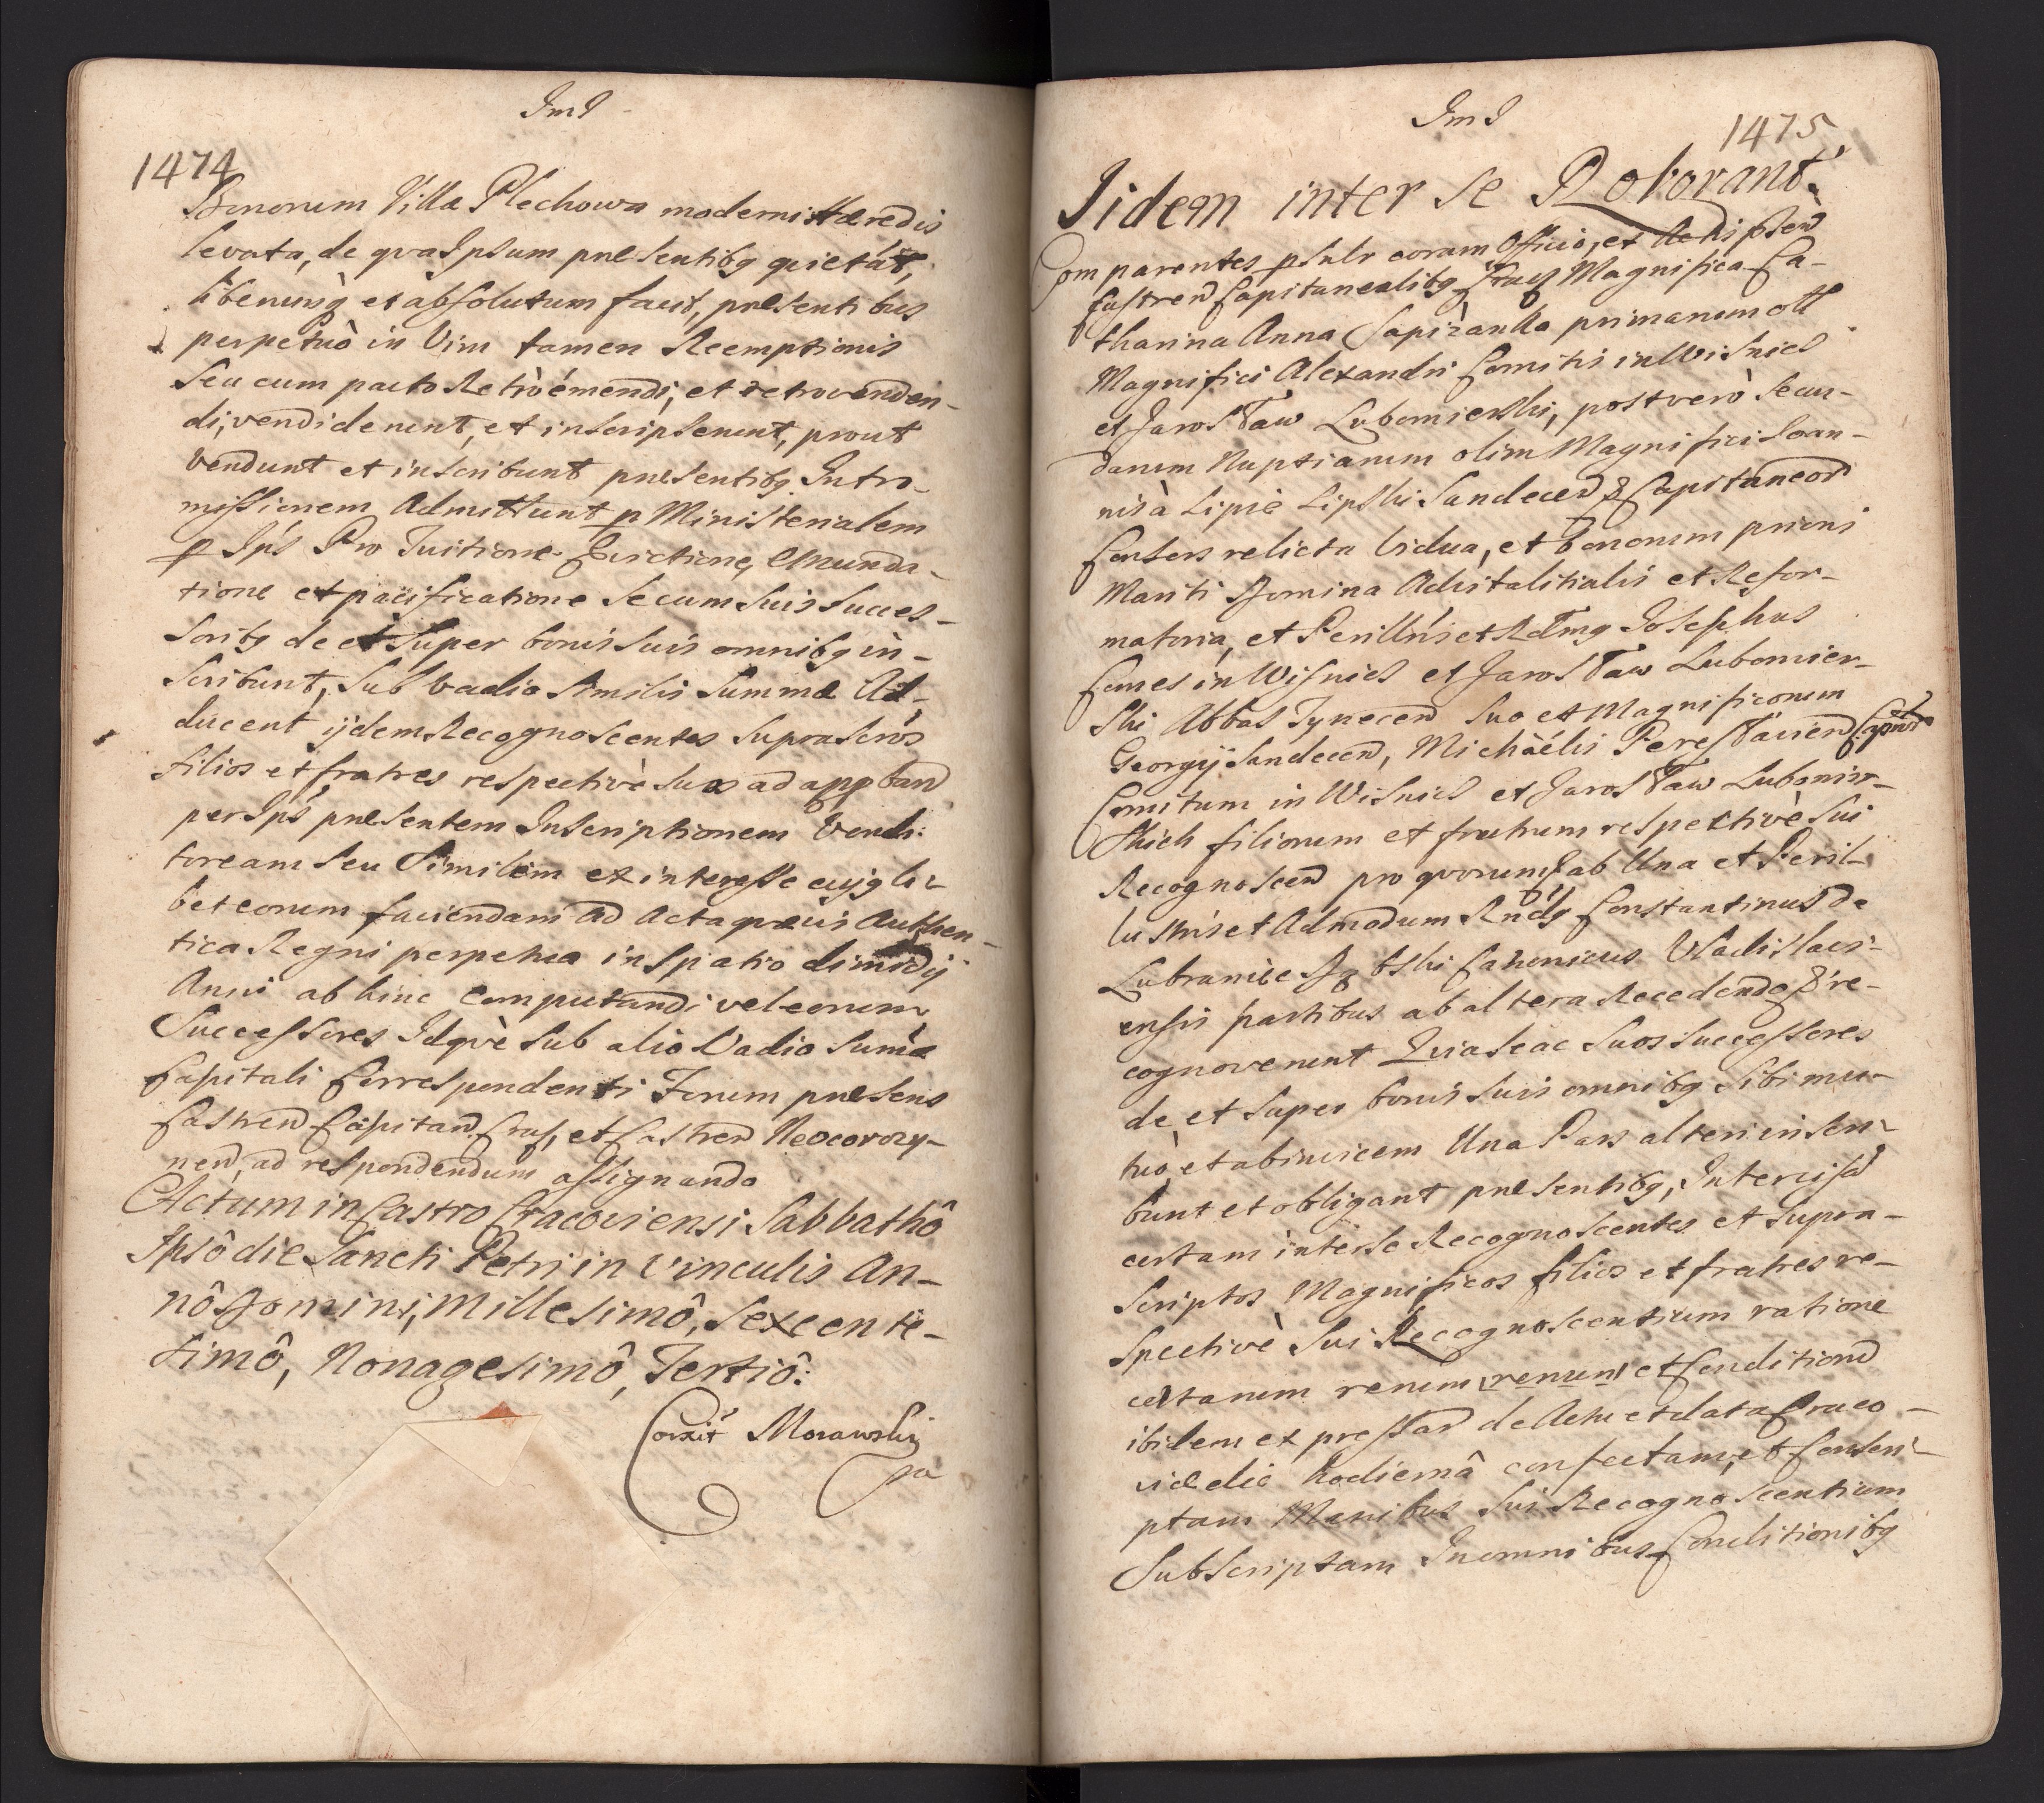 ImI
1474
Bonorum Villæ Plechowa moderni Hæredis
levata, de qva Ipsum præsentibq quietãt,
liberumq et absolutum facit, præsentibus
perpetuò in Vim tamen Reemptionis
Seu cum pacto Retròémendi, et retrovenden-
di, vendiderunt, et inscripserunt, prout
Vendunt et inscribunt præsentibq Intro-
missionem Admittunt p Ministerialem
p Ips Pro Tuitione Evictione, Emunda-
tione et paicificatione se cum suis Succes-
soribq de et Super bonis suis omnibq in-
scribunt, Sub vadio similis Summæ Ad-
ducent ijdem Recognoscentes Suprascros
filios et fratres respectivè suos ad appband
per Ips præsentem Inscriptionem Vendi:
toream seu Similem ex interesse cujqli-
bet eorum faciendam ad Acta qvævis Authen-
tica Regni perpetua in spatio dimidij
Anni ab hinc computandi vel eorum
Successores Idqvè Sub alio Vadio Sumæ
Capitali Correspondenti Forum præsens
Castren Capitan Crac, et Castren Neocorczy-
nen, ad respondendum assignando
Actum in Castro Cracoviensi Sabbathô
Ipsô die Sancti Petri in Vinculis An-
nô Domini, Millesimô, Sexcente-
simô, Nonagesimô, Tertiô:
Corxit Morawski
ImI
1475
Iidem inter se Roborant.
Comparentes psnlr coram Officio, et Actis psen
Castren Capitanealibq Crac Magnifica Ca-
tharina Anna Sapiżanka primarum olt
Magnifici Alexandri Comitis in Wisnicz
et Jarosław Lubomierski, post verò secun-
darum Nuptiarum olim Magnifici Ioan-
nis à Lipie Lipski Sandecen & Capitaneor
Consors relicta vidua, et bonorum prioris
Mariti Domina Advitalitialis et Refor-
matoria, et Perillris et Rdmq Iosephus
Comes in Wisnicz et Jarosław Lubomier-
ski Abbas Tynecen Suo et Magnificorum
Georgij Sandecen, Michàélis Peresławien Captneor
Comitum in Wisnicz et Jarosław Lubomir-
skich filiorum et fratrum respectivè sui
Recognoscen pro qvorum ab Una et Peril-
lustris et Admodum Rndq Constantinus de
Lubraniec Dąbski Canonicus Vladislavi-
ensis partibus ab altera Recedendo & re-
cognoverunt Quia se ac Suos Successores
de et Super bonis suis omnibq sibi mu-
tuò et abinvicem Una Pars alteri inscri-
bunt et obligant præsentibq, Intercisã
certam intèr se Recognoscentes et supra-
scriptos Magnificos filios et fratres re-
spectivè Sui Recognoscentium ratione
certarum rerum rerum et Condition
ibidem expressar de Actu et data Craco-
viæ die hodiernâ confectam, et Conscri-
ptam Manibus Sui Recognoscentium
Subscriptam In omnibus Conditionibq